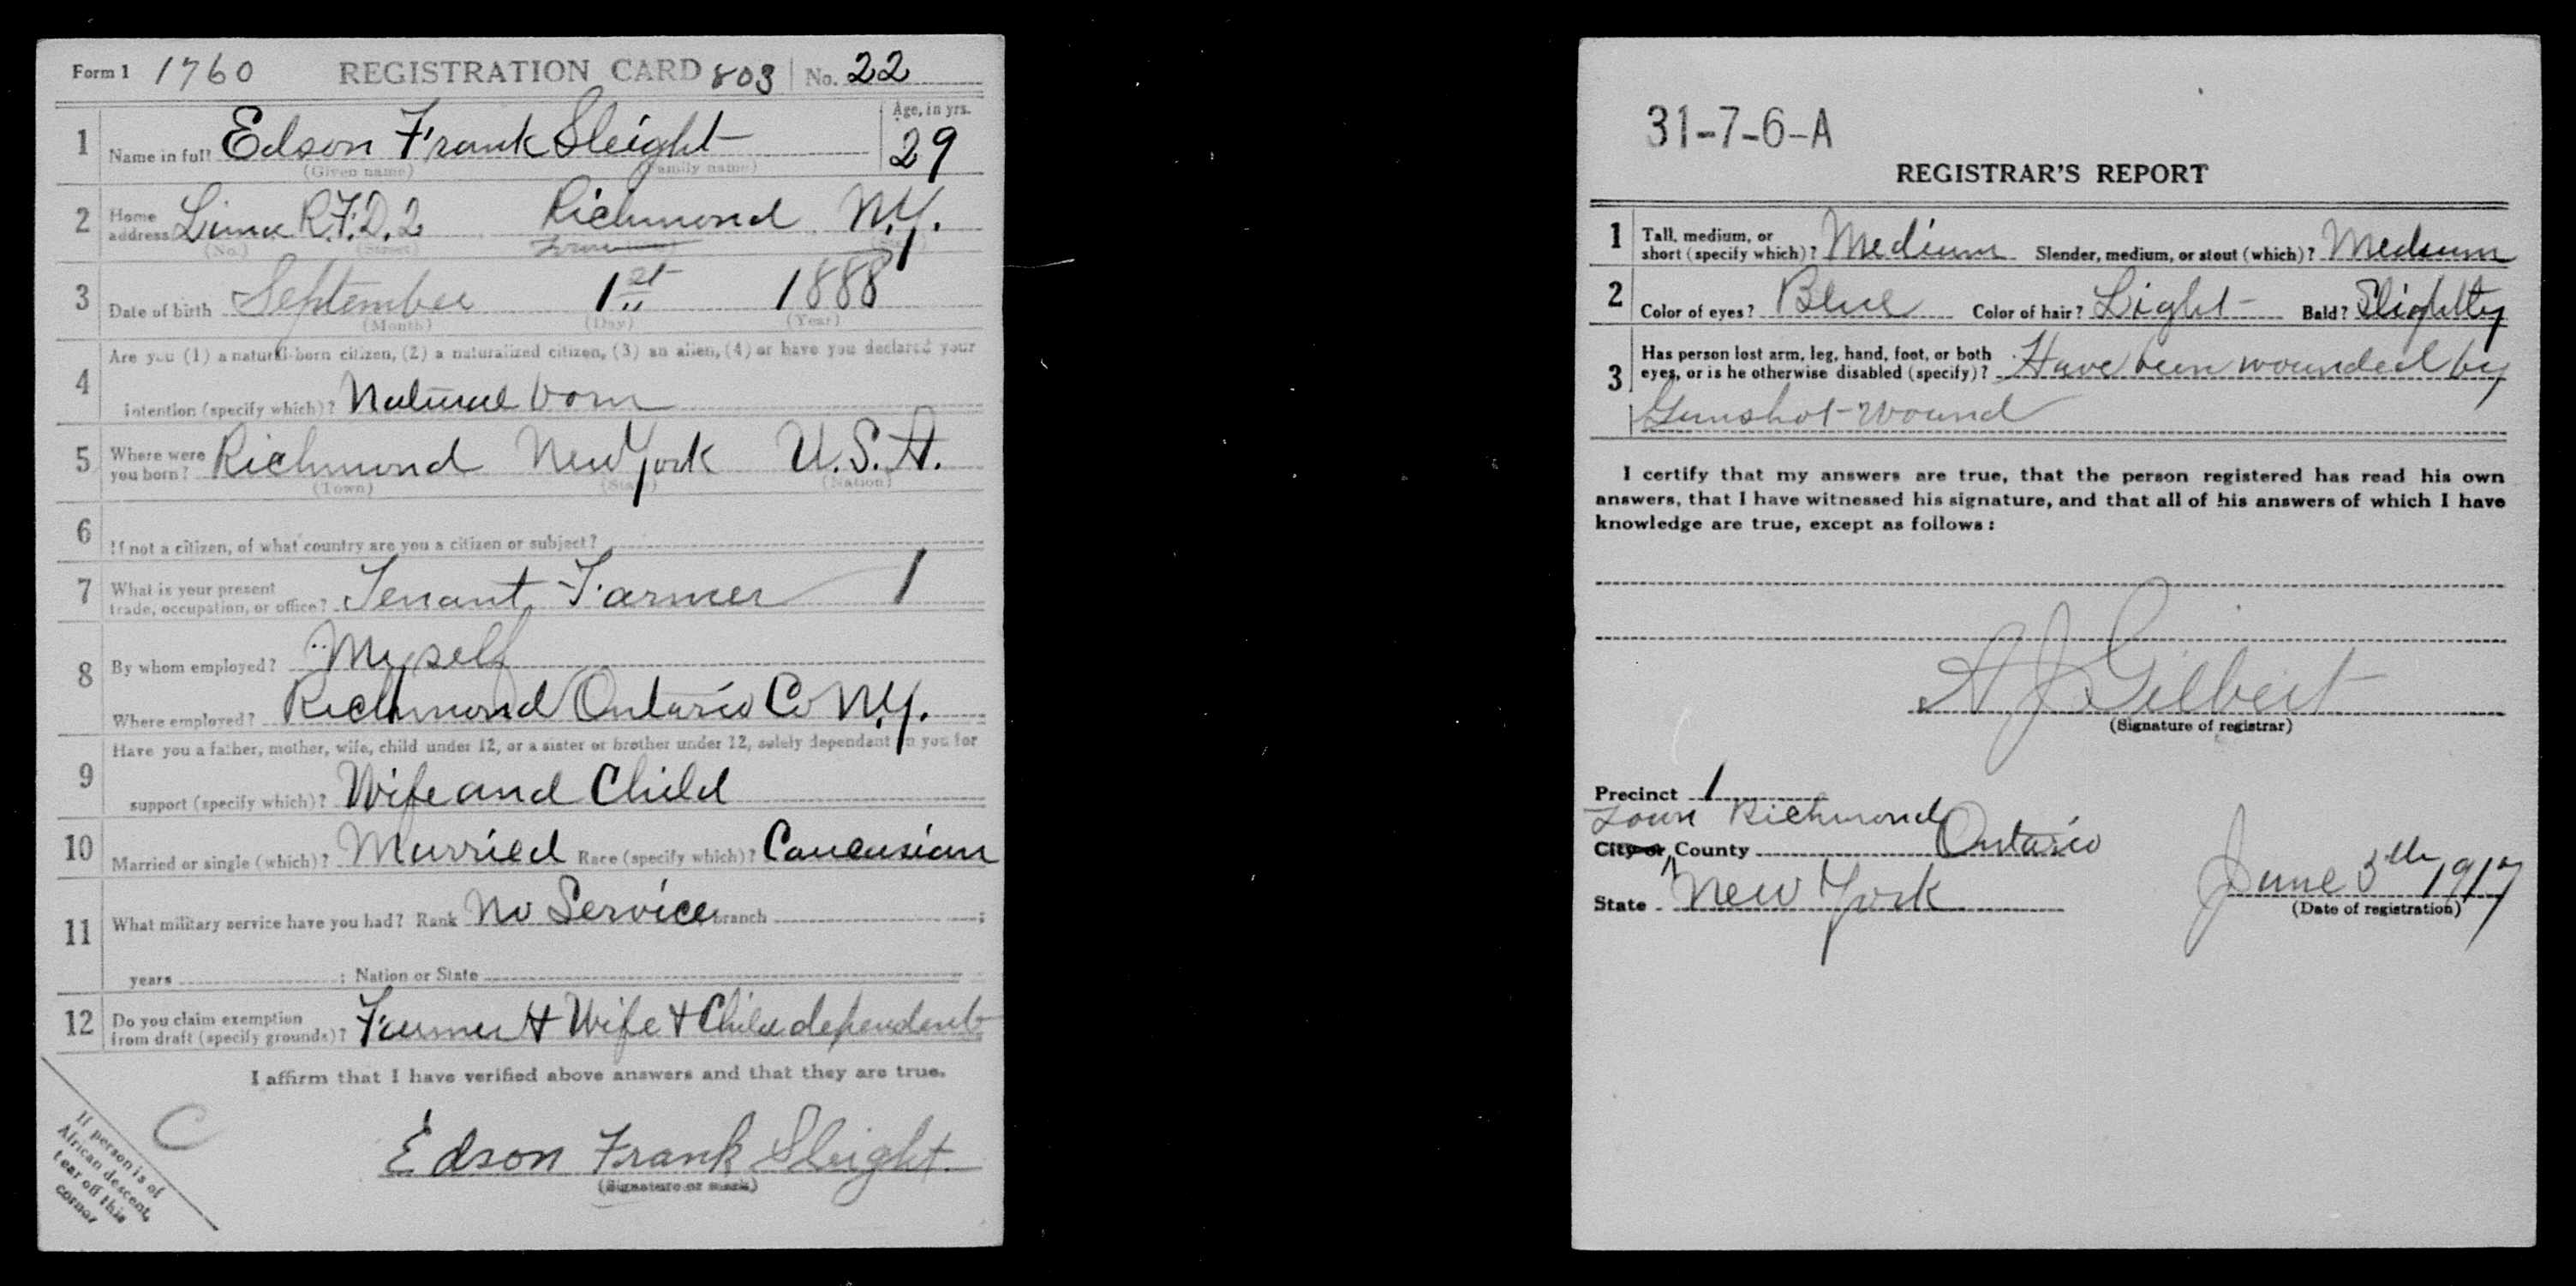 Form 1 1760 REGISTRATION CARD 803 No. 22
Age, in yrs.
1 Name in full Edson Frank Sleight 29
(Given name) (Family name)
2 Home address Lima R.F.D. 2 Richmond N.Y.
(No.) (Street) Town (State)
3 Date of birth September 1st 1888
(Month) (Day) (Year)
Are you (1) a natural-born citizen, (2) a naturalized citizen, (3) an alien, (4) or have you declared your
4 intention (specify which)? Natural born
5 Where were you born? Richmond New York U.S.A.
(Town) (State) (Nation)
6 If not a citizen, of what country are you a citizen or subject?
7 What is your present trade, occupation, or office? Tenant Farmer 1
8 By whom employed? Myself
Where employed? Richmond Ontario Co N.Y.
Have you a father, mother, wife, child under 12, or a sister or brother under 12, solely dependent on you for
9 support (specify which)? Wife and Child
10 Married or single (which)? Married Race (specify which)? Caucasian
11 What military service have you had? Rank No Service branch ;
years ; Nation or State
12 Do you claim exemption from draft (specify grounds)? Farmer + Wife + Child dependent
I affirm that I have verified above answers and that they are true.
C
If person is of
African descent,
tear off this
corner
Edson Frank Sleight
(Signature or mark)
31-7-6-A
REGISTRAR'S REPORT
1 Tall, medium, or short (specify which)? Medium Slender, medium, or stout (which)? Medium
2 Color of eyes? Blue Color of hair? Light Bald? Slightly
3 Has person lost arm, leg, hand, foot, or both eyes, or is he otherwise disabled (specify)? Have been wounded by
Gunshot wound
I certify that my answers are true, that the person registered has read his own
answers, that I have witnessed his signature, and that all of his answers of which I have
knowledge are true, except as follows:
A J Gilbert
(Signature of registrar)
Precinct 1
Town Richmond
City or County Ontario
State New York June 5th 1917
(Date of registration)